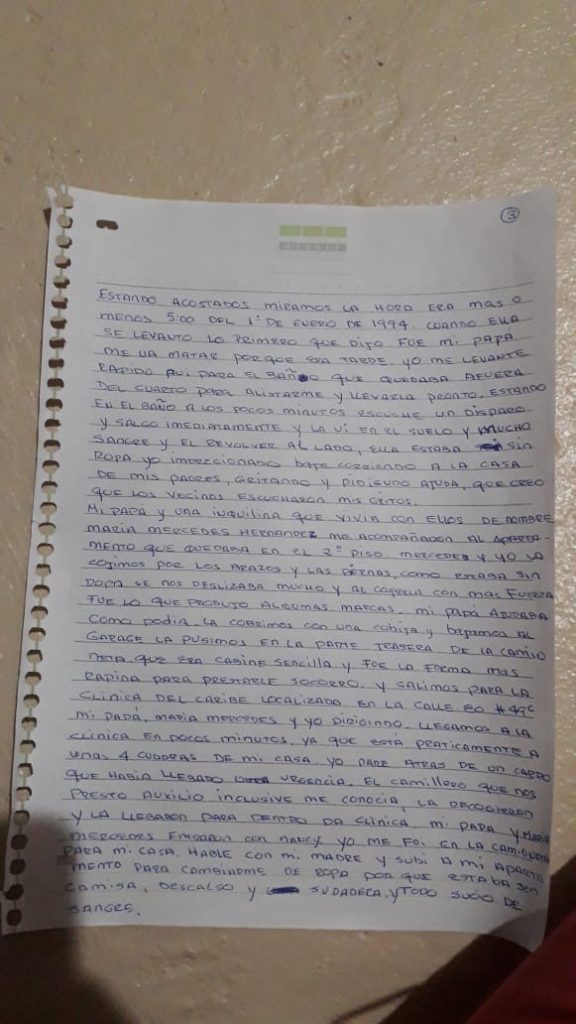 3
ESTANDO ACOSTADOS MIRAMOS LA HORA ERA MAS O
MENOS 5:00 DEL 1º DE ENERO DE 1994. CUANDO ELLA
SE LEVANTO LO PRIMERO QUE DIJO FUE MI PAPÁ
ME VA MATAR PORQUE ERA TARDE. YO ME LEVANTE
RAPIDO FUI PARA EL BAÑO QUE QUEDABA AFUERA
DEL CUARTO PARA ALISTARME Y LLEVARLA PRONTO. ESTANDO
EN EL BAÑO A LOS POCOS MINUTOS ESCUCHE UN DISPARO
Y SALGO IMEDIATAMENTE Y LA VI EN EL SUELO Y MUCHO
SANGRE Y EL REVOLVER AL LADO, ELLA ESTABA SIN
ROPA YO IMPRECIONADO BAJE CORRIENDO A LA CASA
DE MIS PADRES, GRITANDO Y PIDIENDO AYUDA, QUE CREO
QUE LOS VECINOS ESCUCHARON MIS GRITOS.
MI PAPÁ Y UNA INQUILINA QUE VIVIN CON ELLOS DE NOMBRE
MARIA MERCEDES HERNANDEZ ME ACOMPAÑARON AL APARTA-
MENTO QUE QUEDABA EN EL 2º PISO MERCEDES Y YO LA
COJIMOS POR LOS BRAZOS Y LAS PIERNAS, COMO ESTABA SIN
ROPA SE NOS DESLIZABA MUCHO Y AL COGERLA CON MAS FUERZA
FUE LO QUE PRODUJO ALGUNAS MARCAS. MI PAPÁ AYUDABA
COMO PODIA. LA COBRIMOS CON UNA COBIJA Y BAJAMOS AL
GARAGE LA PUSIMOS EN LA PARTE TRASERA DE LA CAMIO
NETA QUE ERA CABINE SENCILLA Y FUE LA FORMA MAS
RAPIDA PARA PRESTARLE SOCORRO. Y SALIMOS PARA LA
CLINICA DEL CARIBE LOCALIZADA EN LA CALLE 80 # 49C
MI PAPÁ, MARIA MERCEDES Y YO DIRIGINDO. LLEGAMOS A LA
CLINICA EN POCOS MINUTOS. YA QUE ESTÁ PRATICAMENTE A
UNAS 4 CUADRAS DE MI CASA. YO PARE ATRAS DE UN CARRO
QUE HABIA LLEGADO URGENCIA. EL CAMILLERO QUE NOS
PRESTO AUXILIO INCLUSIVE ME CONOCIA, LA RECOGIERON
Y LA LLEBARON PARA DENTRO DA CLINICA. MI PAPA Y MARIA
MERCEDES ENTRARON CON NANCY. YO ME FOI EN LA CAMIONETA
PARA MI CASA. HABLE CON MI MADRE Y SUBI A MI APARTA
MENTO PARA CAMBIARME DE ROPA POR QUE ESTABA SEN
CAMISA, DESCALSO Y SUDADERA. Y TODO SUCIO DE
SANGRE.